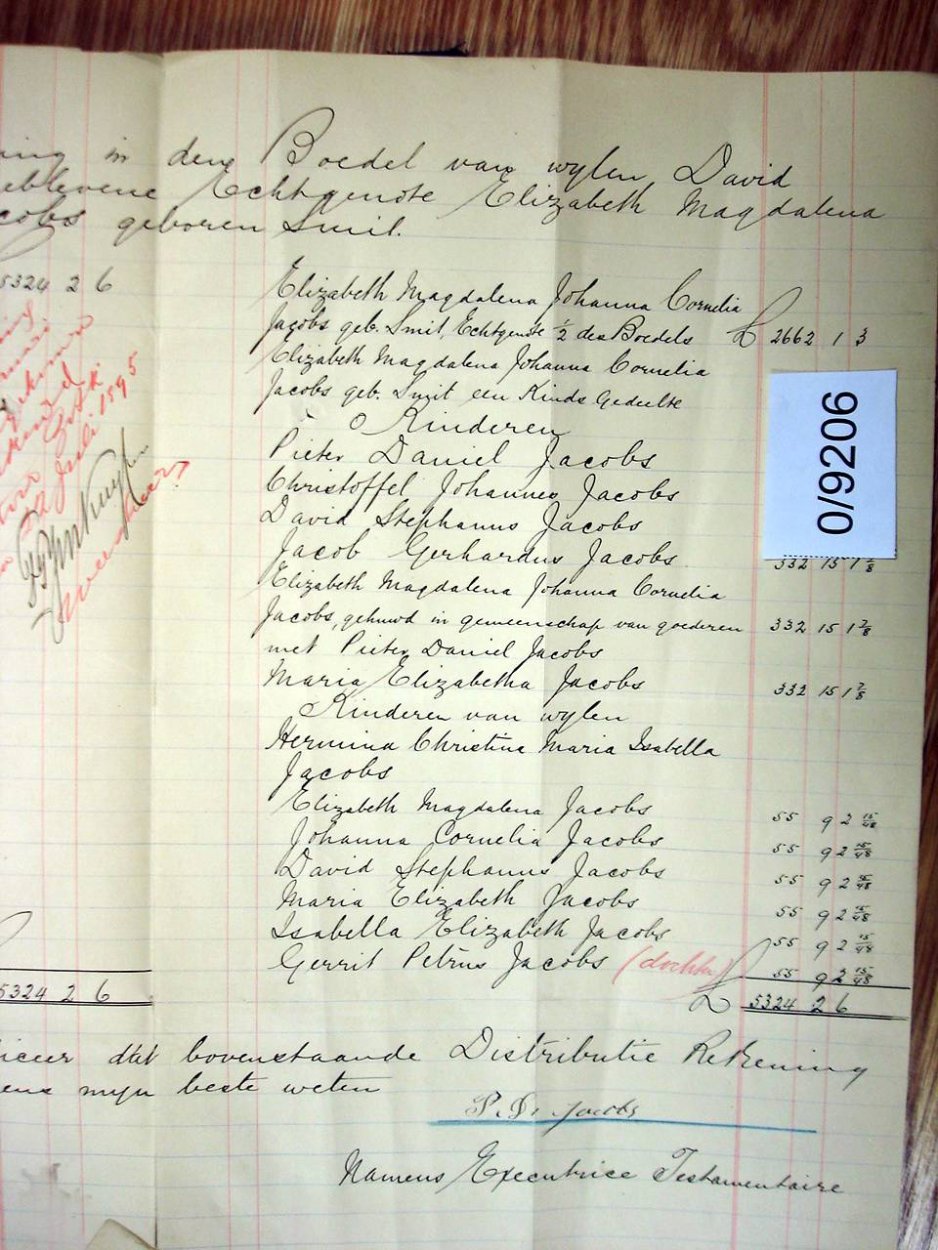 ing in den Boedel van wylen David
eblevene Echtgenote Elizabeth Magdalena
cobs geboren Smit.
5324 2 6
Elizabeth Magdalena Johanna Cornelia
Jacobs geb. Smit, Echtgenote 1/2 des Boedels £ 2662 1 3
Elizabeth Magdalena Johanna Cornelia
Jacobs geb. Smit een Kinds Gedeelte
Kinderen
Pieter Daniel Jacobs
Christoffel Johannes Jacobs
David Stephanus Jacobs
Jacob Gerhardus Jacobs 332 15 1 7/8
Elizabeth Magdalena Johanna Cornelia
Jacobs, gehuwd in gemeenschap van goederen 332 15 1 7/8
met Pieter Daniel Jacobs
Maria Elizabetha Jacobs 332 15 1 7/8
Kinderen van wylen
Hermina Christina Maria Isabella
Jacobs
Elizabeth Magdalena Jacobs 55 9 2 15/48
Johanna Cornelia Jacobs 55 9 2 15/48
David Stephanus Jacobs 55 9 2 15/48
Maria Elizabeth Jacobs 55 9 2 15/48
Isabella Elizabeth Jacobs 55 9 2 15/48
Gerrit Petrus Jacobs (dochter) 55 9 2 15/48
5324 2 6
£ 5324 2 6
iceer dat bovenstaande Distributie Rekening
ens myn beste weten
P. D. Jacobs
Namens Executrice Testamentaire
Juli 1895
0/9206